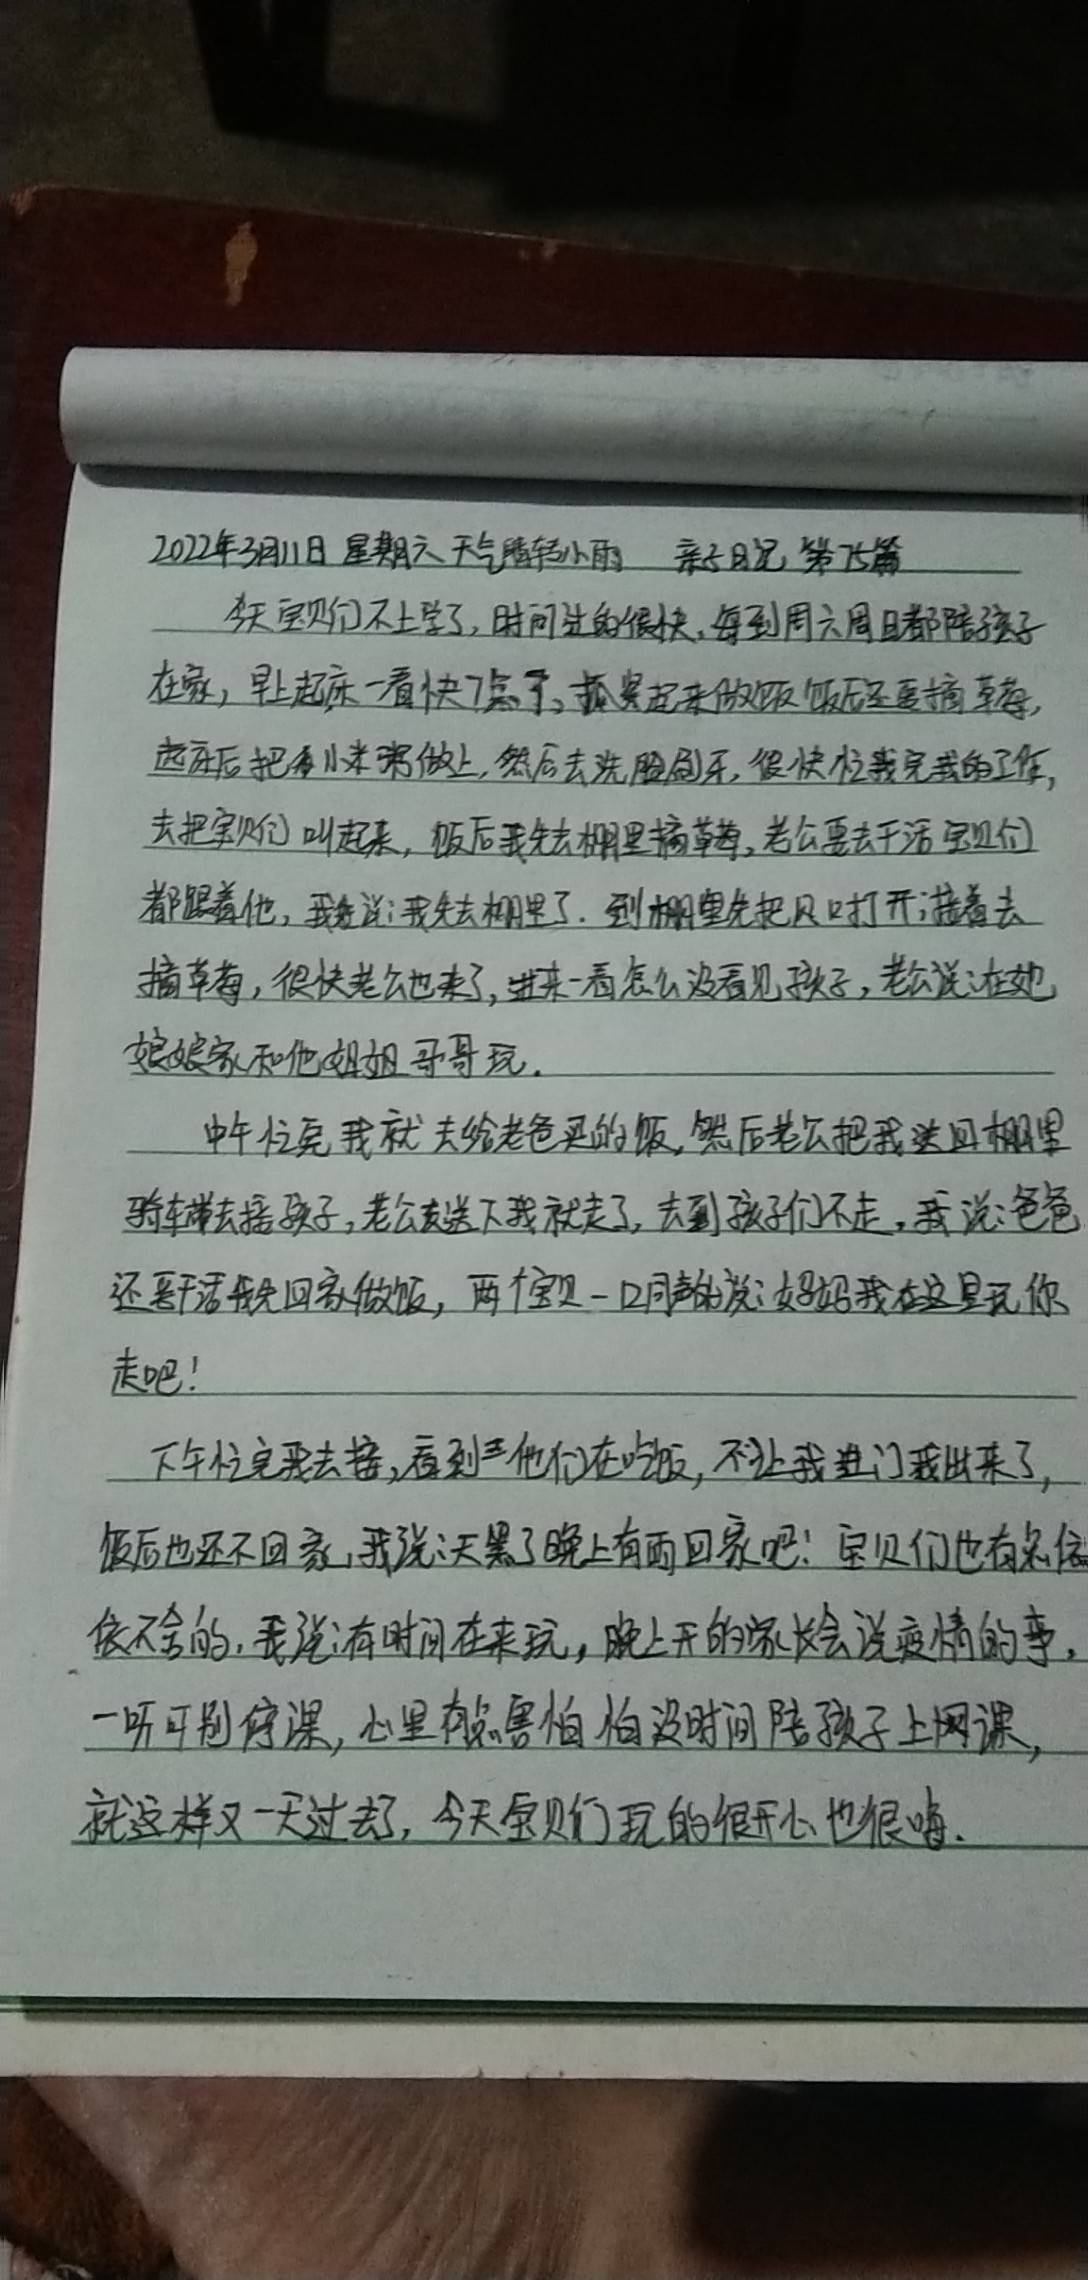 2022年3月11日 星期六 天气晴转小雨 亲子日记 第75篇
今天宝贝们不上学了，时间过的很快，每到周六周日都陪孩子
在家，早上起床一看快7点了，抓紧起来做饭饭后还要摘草莓，
起床后把小米粥做上，然后去洗脸刷牙，很快忙我完我的工作，
去把宝贝们叫起来，饭后我先去棚里摘草莓，老公要去干活宝贝们
都跟着他，我说：我先去棚里了．到棚里先把风口打开；接着去
摘草莓，很快老公也来了，进来一看怎么没看见孩子，老公说：在她
娘娘家和他姐姐哥哥玩．
中午忙完我就去给老爸买的饭，然后老公把我送回棚里
骑车去接孩子，老公送下我就走了，去到孩子们不走，我说：爸爸
还要干活我先回家做饭，两个宝贝一口同声的说：妈妈我在这里玩你
走吧！
下午忙完我去接，看到他们在吃饭，不让我进门我出来了，
饭后也还不回家，我说：天黑了晚上有雨回家吧！宝贝们也有点依
依不舍的．我说：有时间在来玩，晚上开的家长会说疫情的事，
一听可别停课，心里有点害怕怕没时间陪孩子上网课，
就这样又一天过去了，今天宝贝们玩的很开心也很嗨．